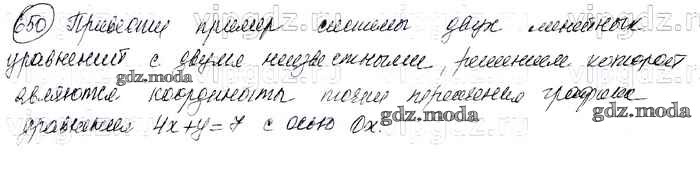 650 Привести пример системы двух линейных
уравнений с двумя неизвестными, решением которой
являются координаты точки пересечения графика
уравнения 4x+y=7 с осью Ox.
gdz.moda gdz.moda gdz.moda